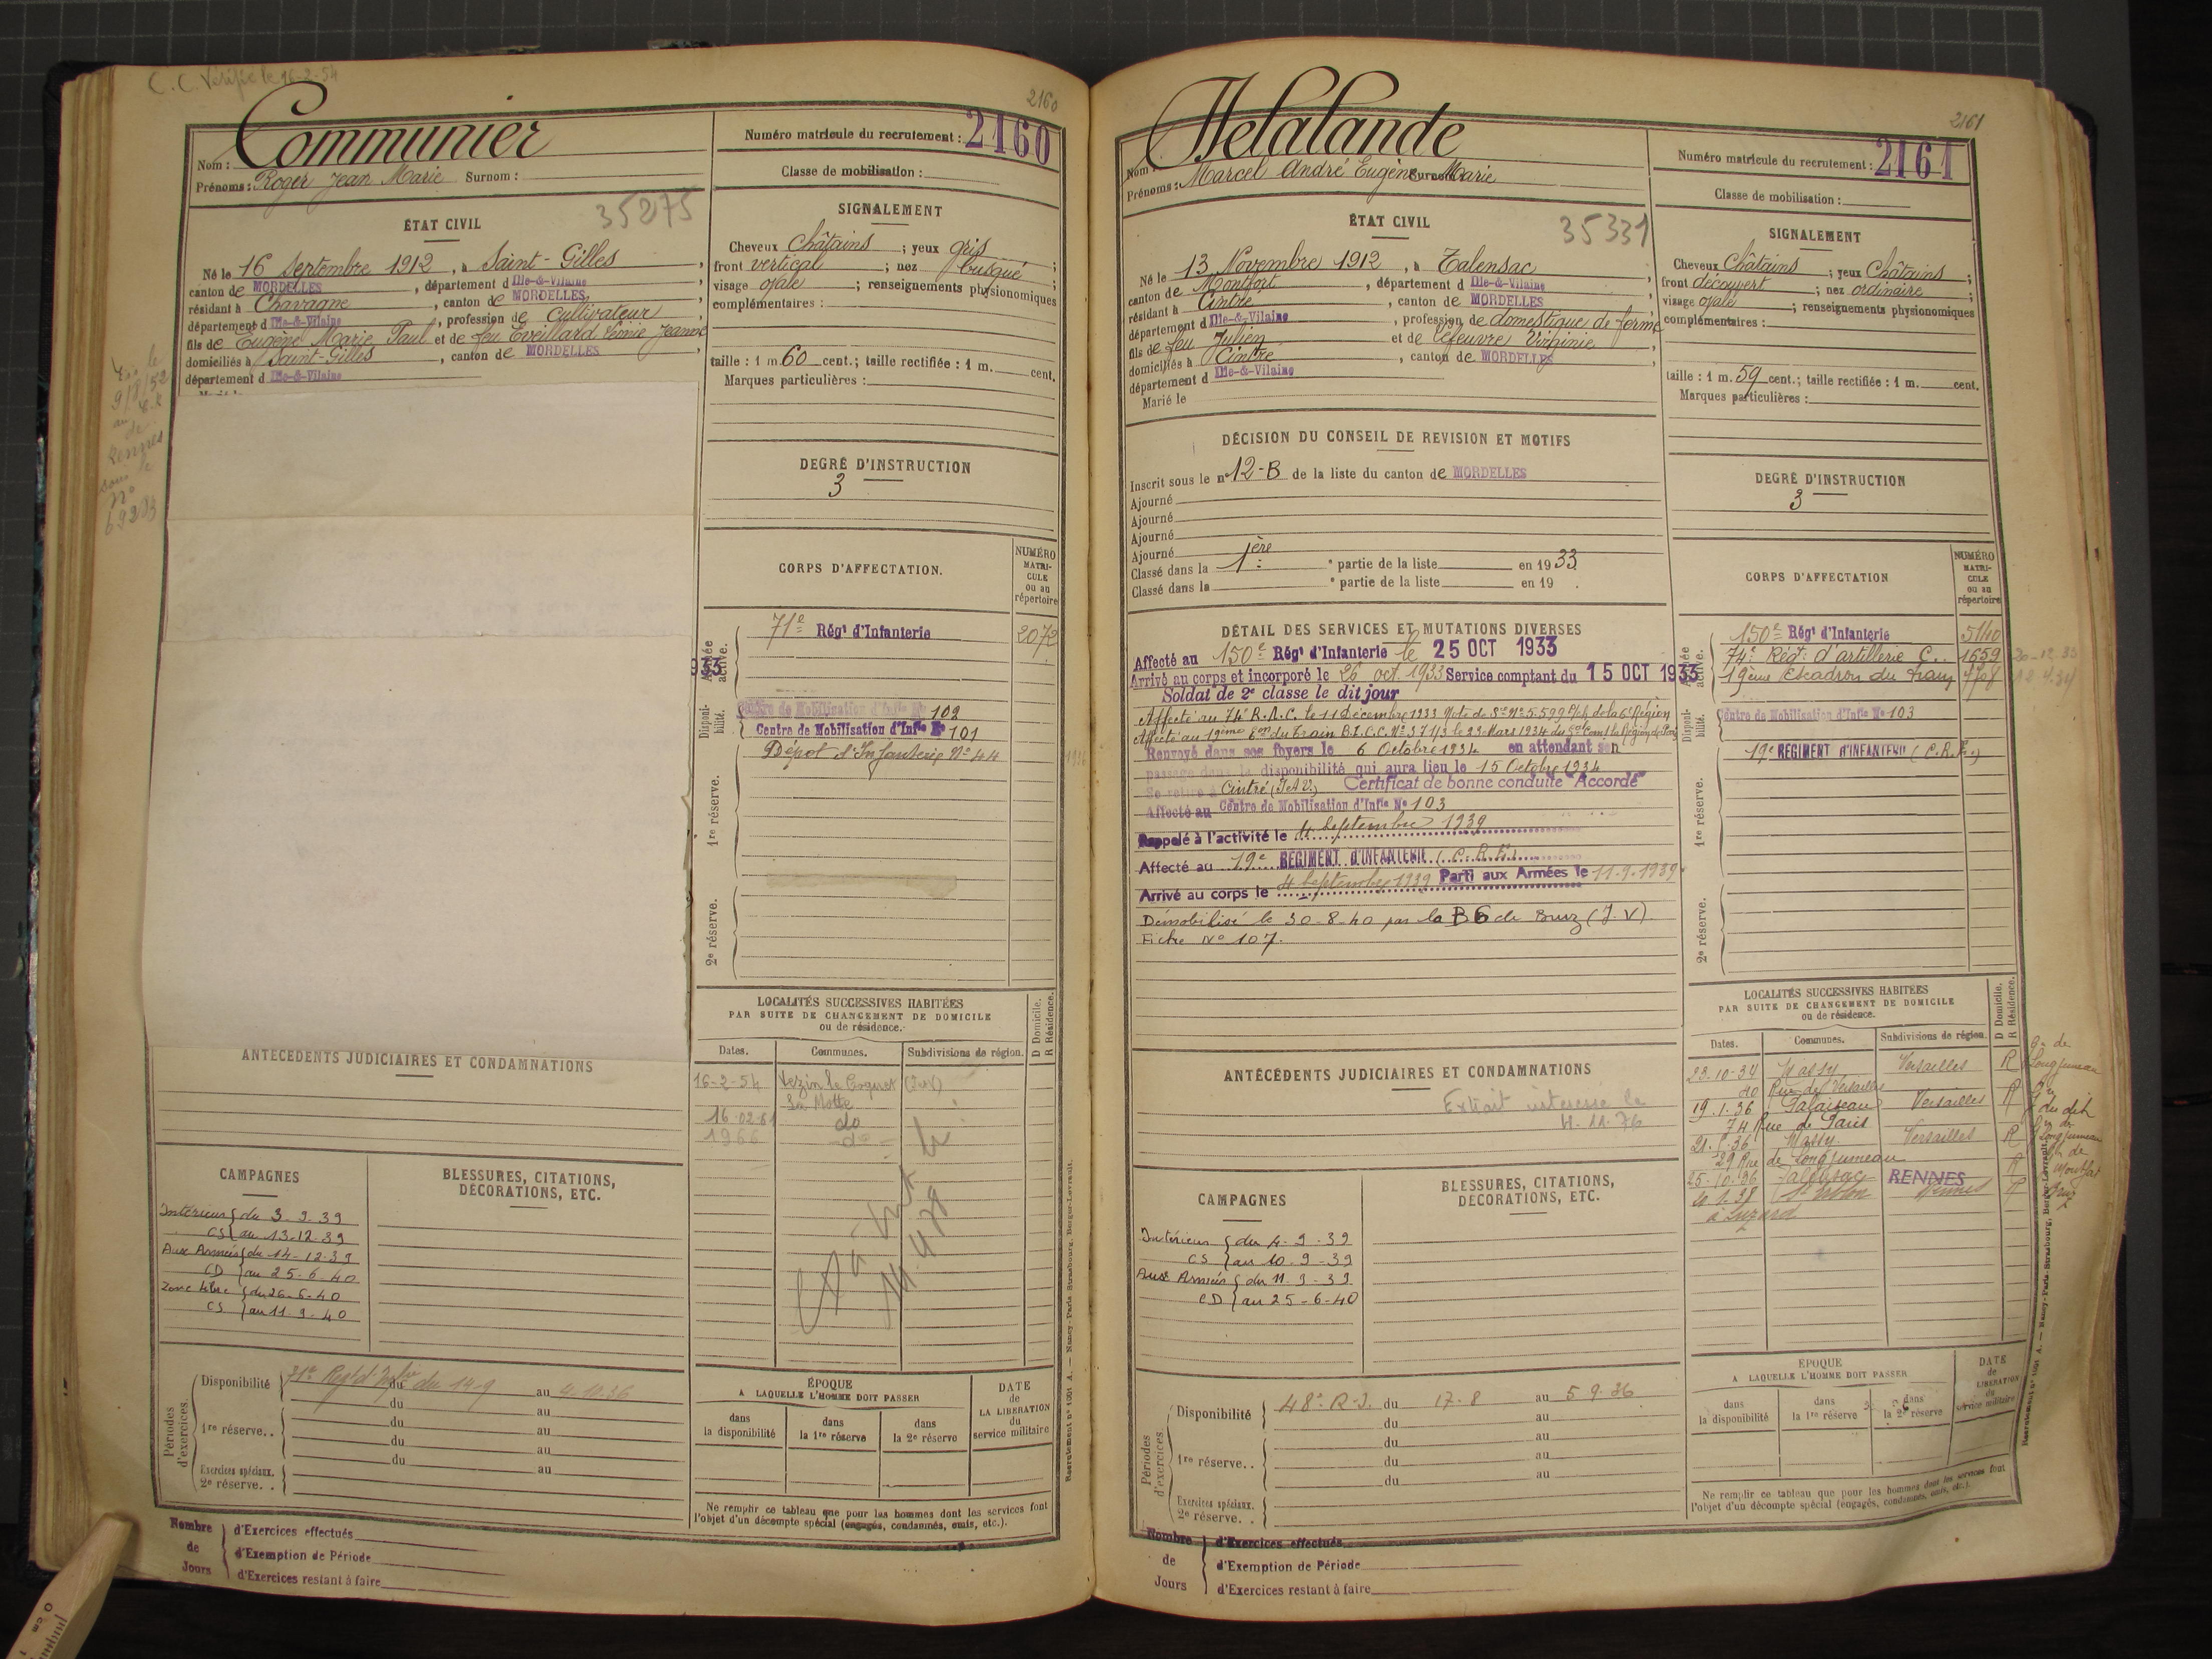 C.C Vérifié le 16-2-54
2160
Communier
Nom :
Prénoms : Roger Jean Marie Surnom :
Numéro matricule du recrutement : 2160
Classe de mobilisation :
ÉTAT CIVIL
35275
Né le 16 Septembre 1912, à Saint-Gilles,
canton de MORDELLES, département d Ille-&-Vilaine,
résidant à Chavagne, canton de MORDELLES,
département d Ille-&-Vilaine, profession de cultivateur,
fils de Eugène Marie Paul et de feu Eveillard Jeanne
domiciliés à Saint-Gilles, canton de MORDELLES,
département d Ille-&-Vilaine
SIGNALEMENT
Cheveux Châtains ; yeux gris ;
front vertical ; nez busqué ;
visage ovale ; renseignements physionomiques
complémentaires :
taille : 1 m. 60 cent.; taille rectifiée : 1 m. cent.
Marques particulières :
DEGRÉ D'INSTRUCTION
3
le
9/8/52
au
de
Rennes
sous le
n°
69283
CORPS D'AFFECTATION.
NUMÉRO MATRI-CULE ou au répertoire
Armée active.
71e Régt d'Infanterie 2072
933
Disponi-bilité.
Centre de Mobilisation d'Infie N° 102
Centre de Mobilisation d'Infie N° 101
Dépot d'Infanterie N° 44
1re réserve.
2e réserve.
LOCALITÉS SUCCESSIVES HABITÉES
PAR SUITE DE CHANGEMENT DE DOMICILE
ou de résidence.
D Domicile.
R Résidence.
Dates. Communes. Subdivisions de région.
16-2-54 Vezin le Coquet
La Motte
16-02-61 do
1966 -do-
ANTÉCÉDENTS JUDICIAIRES ET CONDAMNATIONS
CAMPAGNES
BLESSURES, CITATIONS,
DÉCORATIONS, ETC.
Intérieur { du 3-9-39
CS } au 13-12-39
Aux Armées { du 14-12-39
CD } au 25-6-40
Zone libre { du 26-6-40
CS } au 11-9-40
Périodes d'exercices.
Disponibilité 71e Regt d'Infie du 14-9 au 4.10.36
du au
1re réserve.. du au
du au
du au
Exercices spéciaux.
2e réserve. .
ÉPOQUE
A LAQUELLE L'HOMME DOIT PASSER
dans la disponibilité
dans la 1re réserve
dans la 2e réserve
DATE de LA LIBÉRATION du service militaire
Ne remplir ce tableau que pour les hommes dont les services font
l'objet d'un décompte spécial (engagés, condamnés, omis, etc.).
Nombre de Jours
d'Exercices effectués
d'Exemption de Période
d'Exercices restant à faire
Recrutement n° 1001 A. — Nancy-Paris-Strasbourg, Berger-Levrault.
2161
Delalande
Nom :
Prénoms : Marcel André Eugène Surnom : Marie
Numéro matricule du recrutement : 2161
Classe de mobilisation :
ÉTAT CIVIL
35331
Né le 13 Novembre 1912, à Talensac,
canton de Montfort, département d Ille-&-Vilaine,
résidant à Cintré, canton de MORDELLES,
département d Ille-&-Vilaine, profession de domestique de ferme
fils de feu Julien et de Lefeuvre Virginie,
domiciliés à Cintré, canton de MORDELLES,
département d Ille-&-Vilaine
Marié le
SIGNALEMENT
Cheveux Châtains ; yeux Châtains ;
front découvert ; nez ordinaire ;
visage ovale ; renseignements physionomiques
complémentaires :
taille : 1 m. 59 cent.; taille rectifiée : 1 m. cent.
Marques particulières :
DÉCISION DU CONSEIL DE REVISION ET MOTIFS
Inscrit sous le n° 12-B de la liste du canton de MORDELLES
Ajourné
Ajourné
Ajourné
Ajourné
Classé dans la 1ère e partie de la liste en 1933
Classé dans la e partie de la liste en 19 .
DEGRÉ D'INSTRUCTION
3
DÉTAIL DES SERVICES ET MUTATIONS DIVERSES
Affecté au 150e Régt d'Infanterie le 25 OCT 1933
Arrivé au corps et incorporé le 26 oct. 1933 Service comptant du 15 OCT 1933
Soldat de 2e classe le dit jour
Affecté au 74e R.A.C. le 11 Décembre 1933 Note de Sce N° 5.599 de la 6e Région
Affecté au 19ème Eon du Train B.I.C.C. N° 371/3 le 29 Mars 1934
Renvoyé dans ses foyers le 6 Octobre 1934 en attendant son
passage dans la disponibilité qui aura lieu le 15 Octobre 1934
Se retire à Cintré (I et V.) Certificat de bonne conduite "Accordé"
Affecté au Centre de Mobilisation d'Infie N° 103
Rappelé à l'activité le 4 Septembre 1939
Affecté au 19e RÉGIMENT D'INFANTERIE (C.R.E.)
Arrivé au corps le 4 Septembre 1939 Parti aux Armées le 11-9-1939
Démobilisé le 30-8-40 par la B G de Bruz (I.V)
Fiche N° 107.
CORPS D'AFFECTATION
NUMÉRO MATRI-CULE ou au répertoire
Armée active.
150e Régt d'Infanterie 5140
74e Régt d'artillerie C. 1659 20-12-33
19ème Escadron du Train
Disponi-bilité.
Centre de Mobilisation d'Infie N° 103
19e RÉGIMENT D'INFANTERIE (C.R.E.)
1re réserve.
2e réserve.
LOCALITÉS SUCCESSIVES HABITÉES
PAR SUITE DE CHANGEMENT DE DOMICILE
ou de résidence.
D Domicile.
R Résidence.
Dates. Communes. Subdivisions de région.
23-10-34 Massy Versailles R
Longjumeau
20 Rue de Versailles
19.1.36 Palaiseau Versailles R
du dit
74 Rue de Paris
Massy Versailles R
Longjumeau
29 Rue de Longjumeau
25-10-36 Talensac RENNES R
Montfort
Rennes R
ANTÉCÉDENTS JUDICIAIRES ET CONDAMNATIONS
Extrait intéressé le
4.11.76
CAMPAGNES
BLESSURES, CITATIONS,
DÉCORATIONS, ETC.
Intérieur { du 4-9-39
CS } au 10-9-39
Aux Armées { du 11-9-39
CD } au 25-6-40
Périodes d'exercices
Disponibilité 48e R.I. du 17-8 au 5 9.36
du au
1re réserve.. du au
du au
du au
Exercices spéciaux.
2e réserve. .
ÉPOQUE
A LAQUELLE L'HOMME DOIT PASSER
dans la disponibilité
dans la 1re réserve
dans la 2e réserve
DATE de LIBÉRATION du service militaire
Ne remplir ce tableau que pour les hommes dont les services font
l'objet d'un décompte spécial (engagés, condamnés, omis, etc.).
Nombre de Jours
d'Exercices effectués
d'Exemption de Période
d'Exercices restant à faire
Recrutement n° 1001 A. — Nancy-Paris-Strasbourg, Berger-Levrault.
0 cm 1